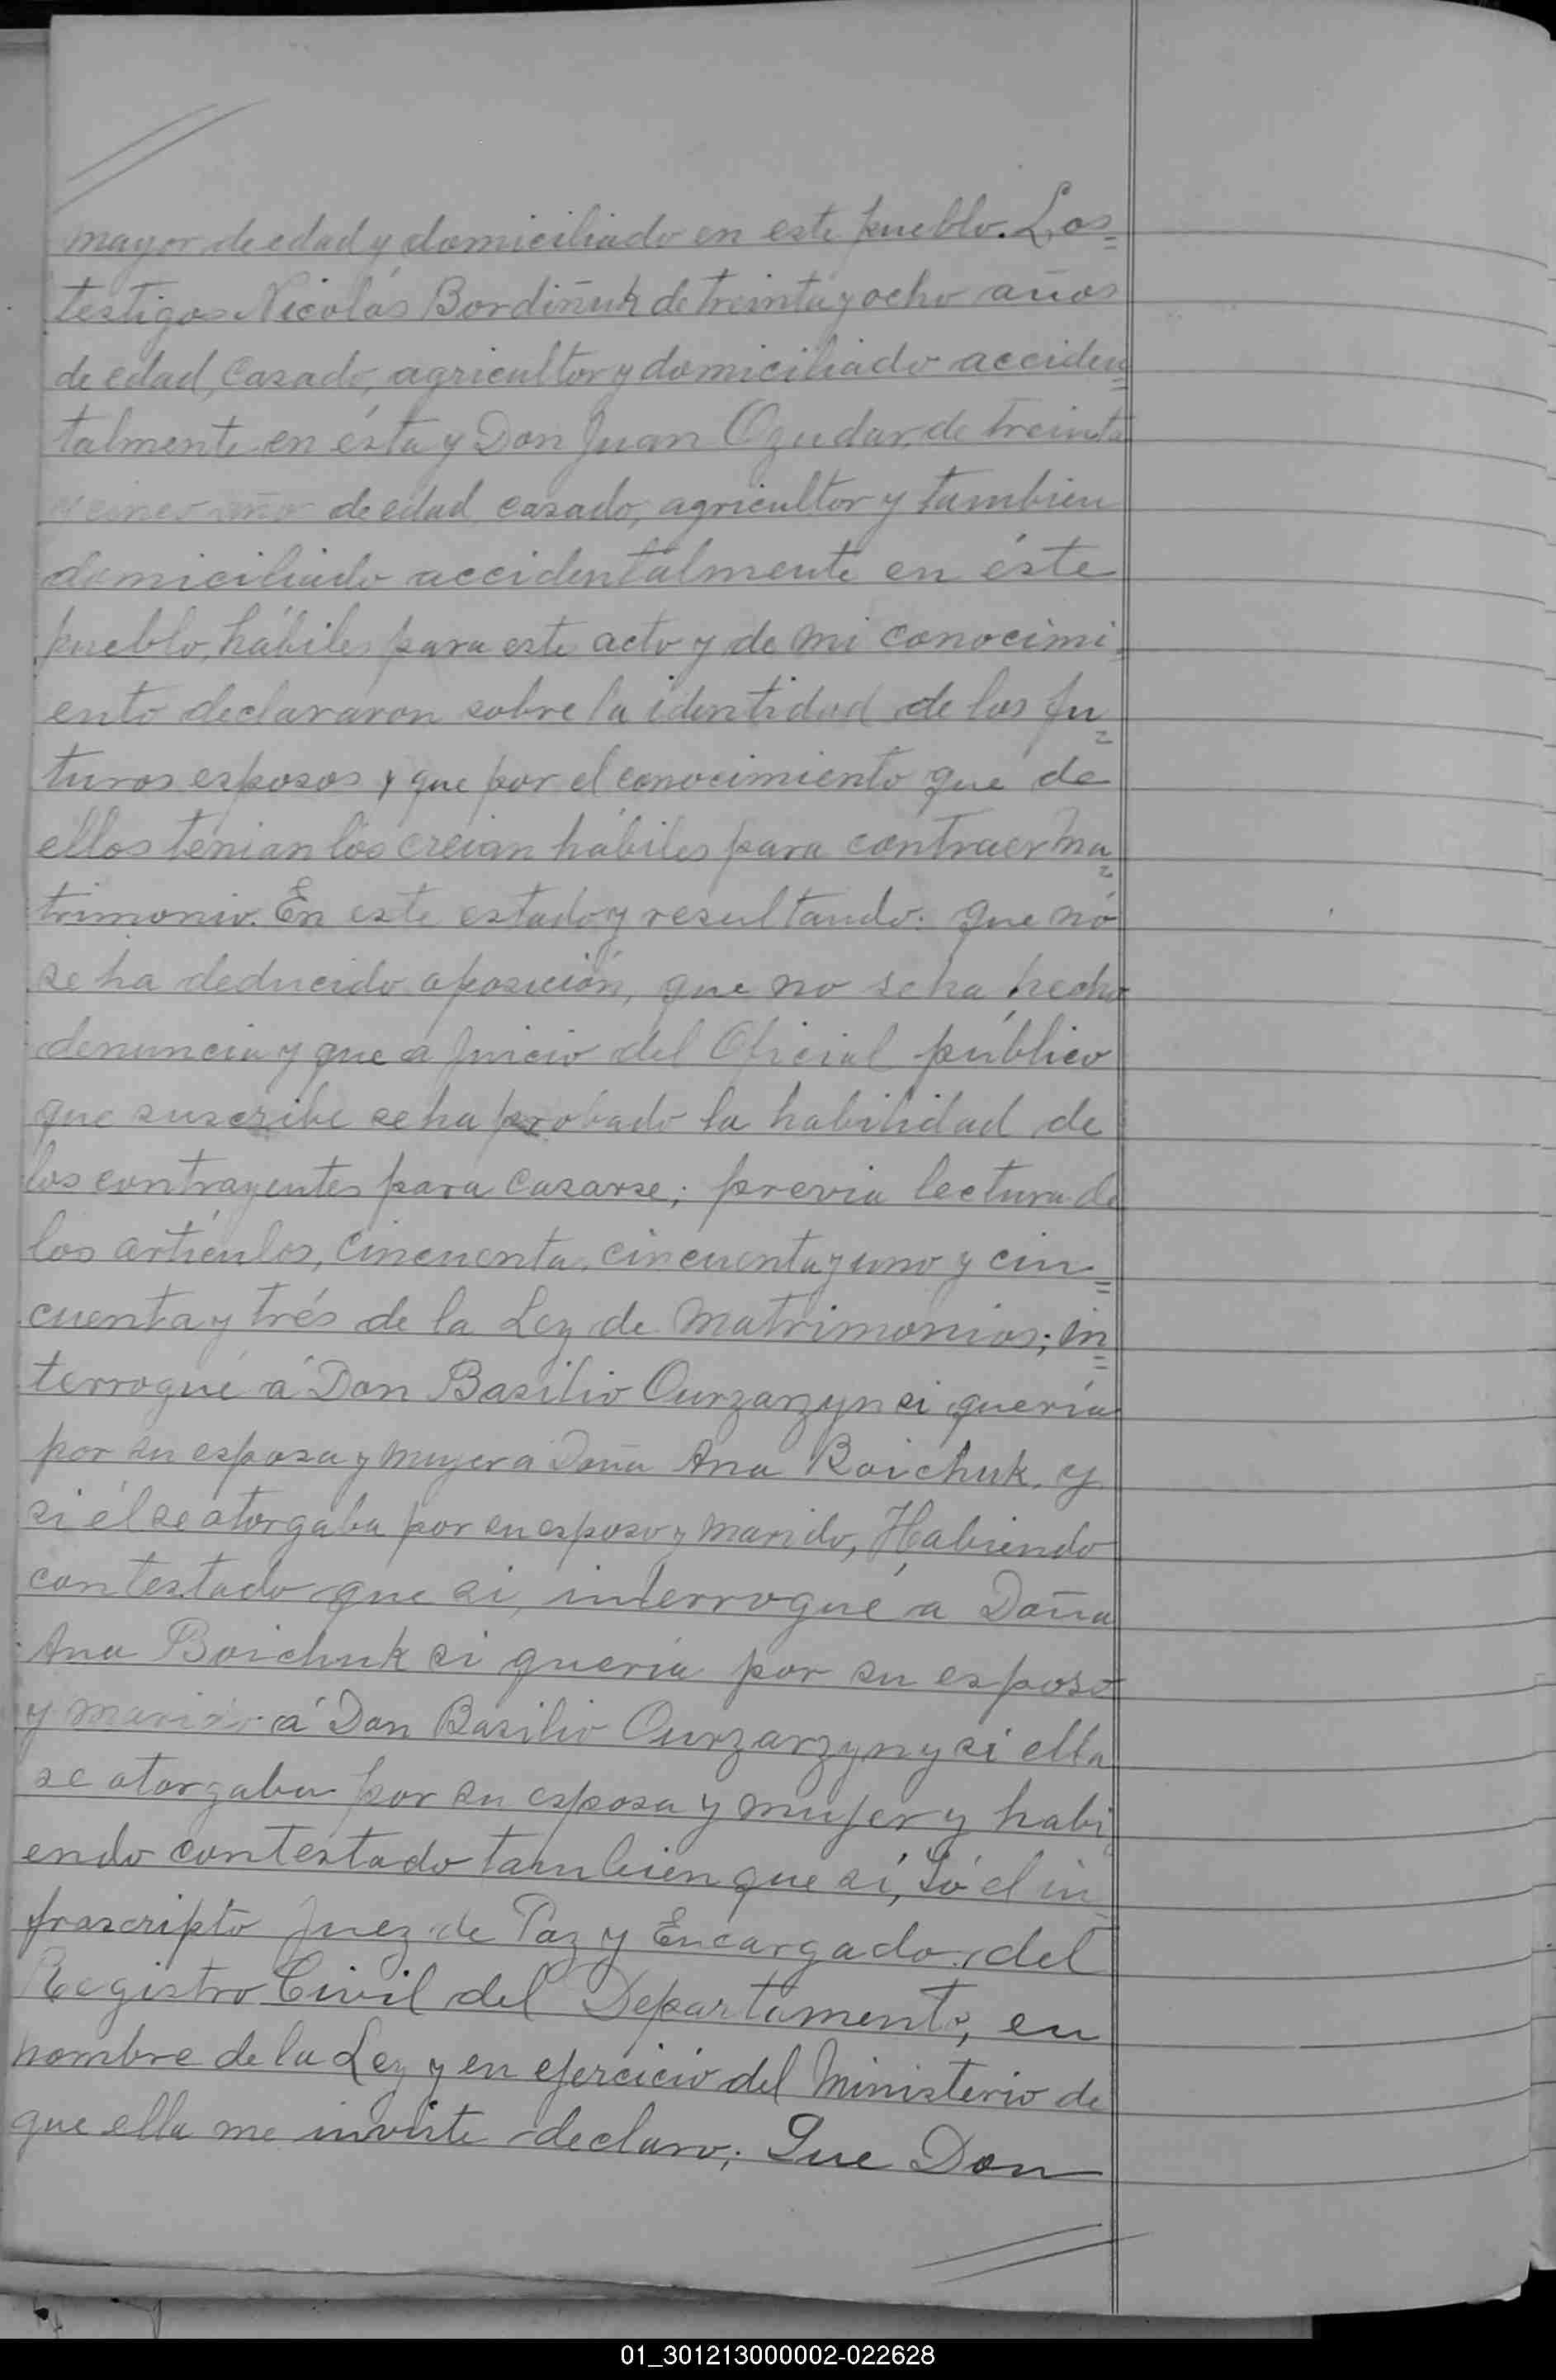 mayor de edad y domiciliado en este pueblo. Los=
testigos Nicolás Bordiñuk de treinta y ocho años
de edad, Casado, agricultor y domiciliado acciden=
talmente en ésta y Don Juan Ozudar, de treinta
y cinco años de edad, casado, agricultor y tambien
domiciliado accidentalmente en éste
pueblo, hábiles para este acto y de mi conocimi=
ento declararon sobre la identidad de los fu=
turos esposos y que por el conocimiento que de
ellos tenian los creian hábiles para contraer ma=
trimonio. En este estado y resultando: que nó
se ha deducido oposición, que no se ha hecho
denuncia y que a juicio del Oficial público
que suscribe se ha probado la habilidad de
los contrayentes para casarse; previa lectura de
los artículos, cincuenta, cincuenta y uno y cin=
cuenta y trés de la Ley de Matrimonios; in=
terrogué á Don Basilio Ourzarzyn si quería
por su esposa y mujer a Doña Ana Boichuk, y
si él se otorgaba por su esposo y marido, Habiendo
contestado que si, interrogué a Doña
Ana Boichuk si quería por su esposo
y marido á Don Basilio Ourzarzyn y si ella
se otorgaba por su esposa y mujer y habi
endo contestado tambien que sí, Yó el in=
frascripto Juez de Paz y Encargado del
Registro Civil del Departamento, en
nombre de la Ley y en ejercicio del Ministerio de
que ella me inviste declaro; Que Don
01_301213000002-022628